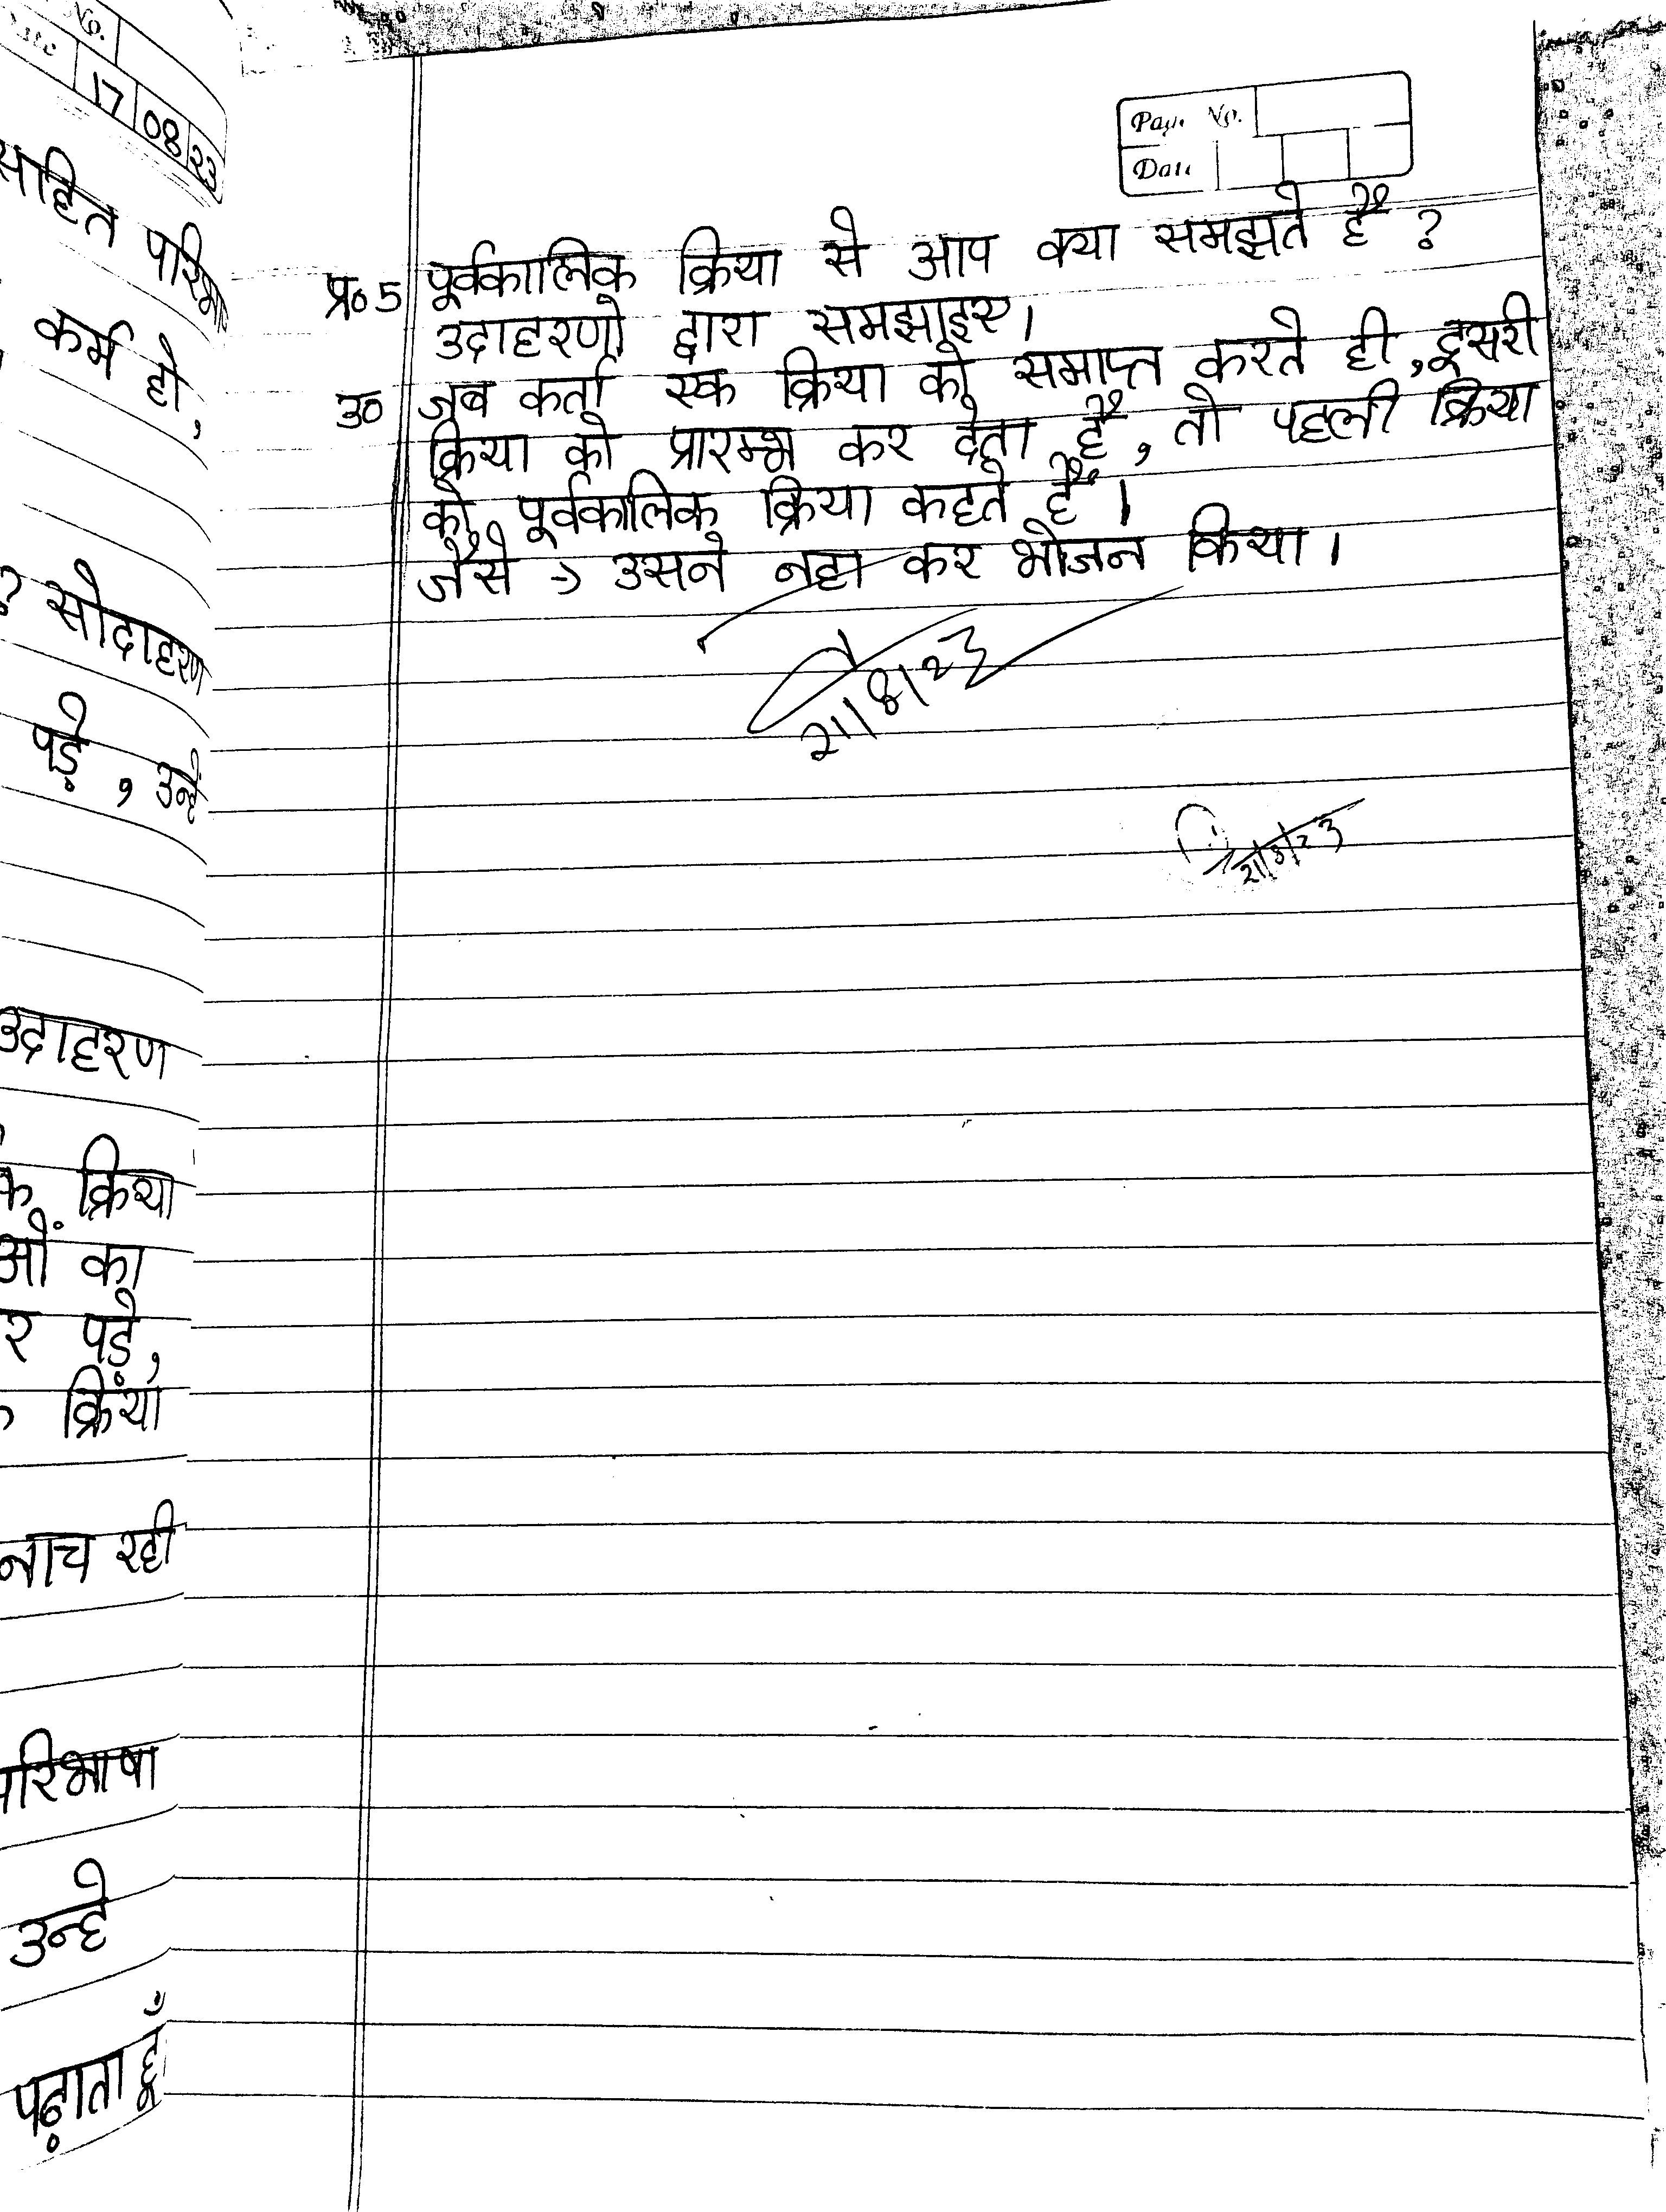 No.
17 08 23
सहित
कर्म हो,
? सोदाहरण
पड़े, उन्हे
उदाहरण
क्रिया
ओं का
र पड़े,
क्रिया
नाच रही
परिभाषा
उन्हे
पढ़ाता हूँ
Page No.
Date
प्र० 5 पूर्वकालिक क्रिया से आप क्या समझते हैं ?
उदाहरणो द्वारा समझाइए।
उ० जब कर्ता एक क्रिया को समाप्त करते ही, दूसरी
क्रिया को प्रारम्भ कर देता है, तो पहली क्रिया
को पूर्वकालिक क्रिया कहते हैं।
जैसे → उसने नहा कर भोजन किया।
21/8/23
21/8/23